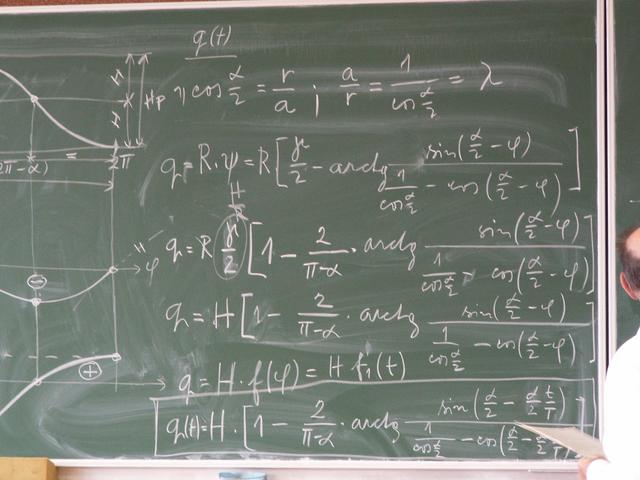 q(t)
Hp η cos α/2 = r/a ; a/r = 1/(cos α/2) = λ
q = R·ψ = R [ γ/2 - arctg sin(α/2 - φ) / ( 1/(cos α/2) - cos(α/2 - φ) ) ]
H/R
q = R γ/2 [ 1 - 2/(π-α) · arctg sin(α/2 - φ) / ( 1/(cos α/2) - cos(α/2 - φ) ) ]
q = H [ 1 - 2/(π-α) · arctg sin(α/2 - φ) / ( 1/(cos α/2) - cos(α/2 - φ) ) ]
q = H · f(φ) = H f₁(t)
q(t) = H · [ 1 - 2/(π-α) · arctg sin(α/2 - α/2 t/T) / ( 1/(cos α/2) - cos(α/2 -
H
H
2π-α) =
2π
φ
"
⊖
⊕